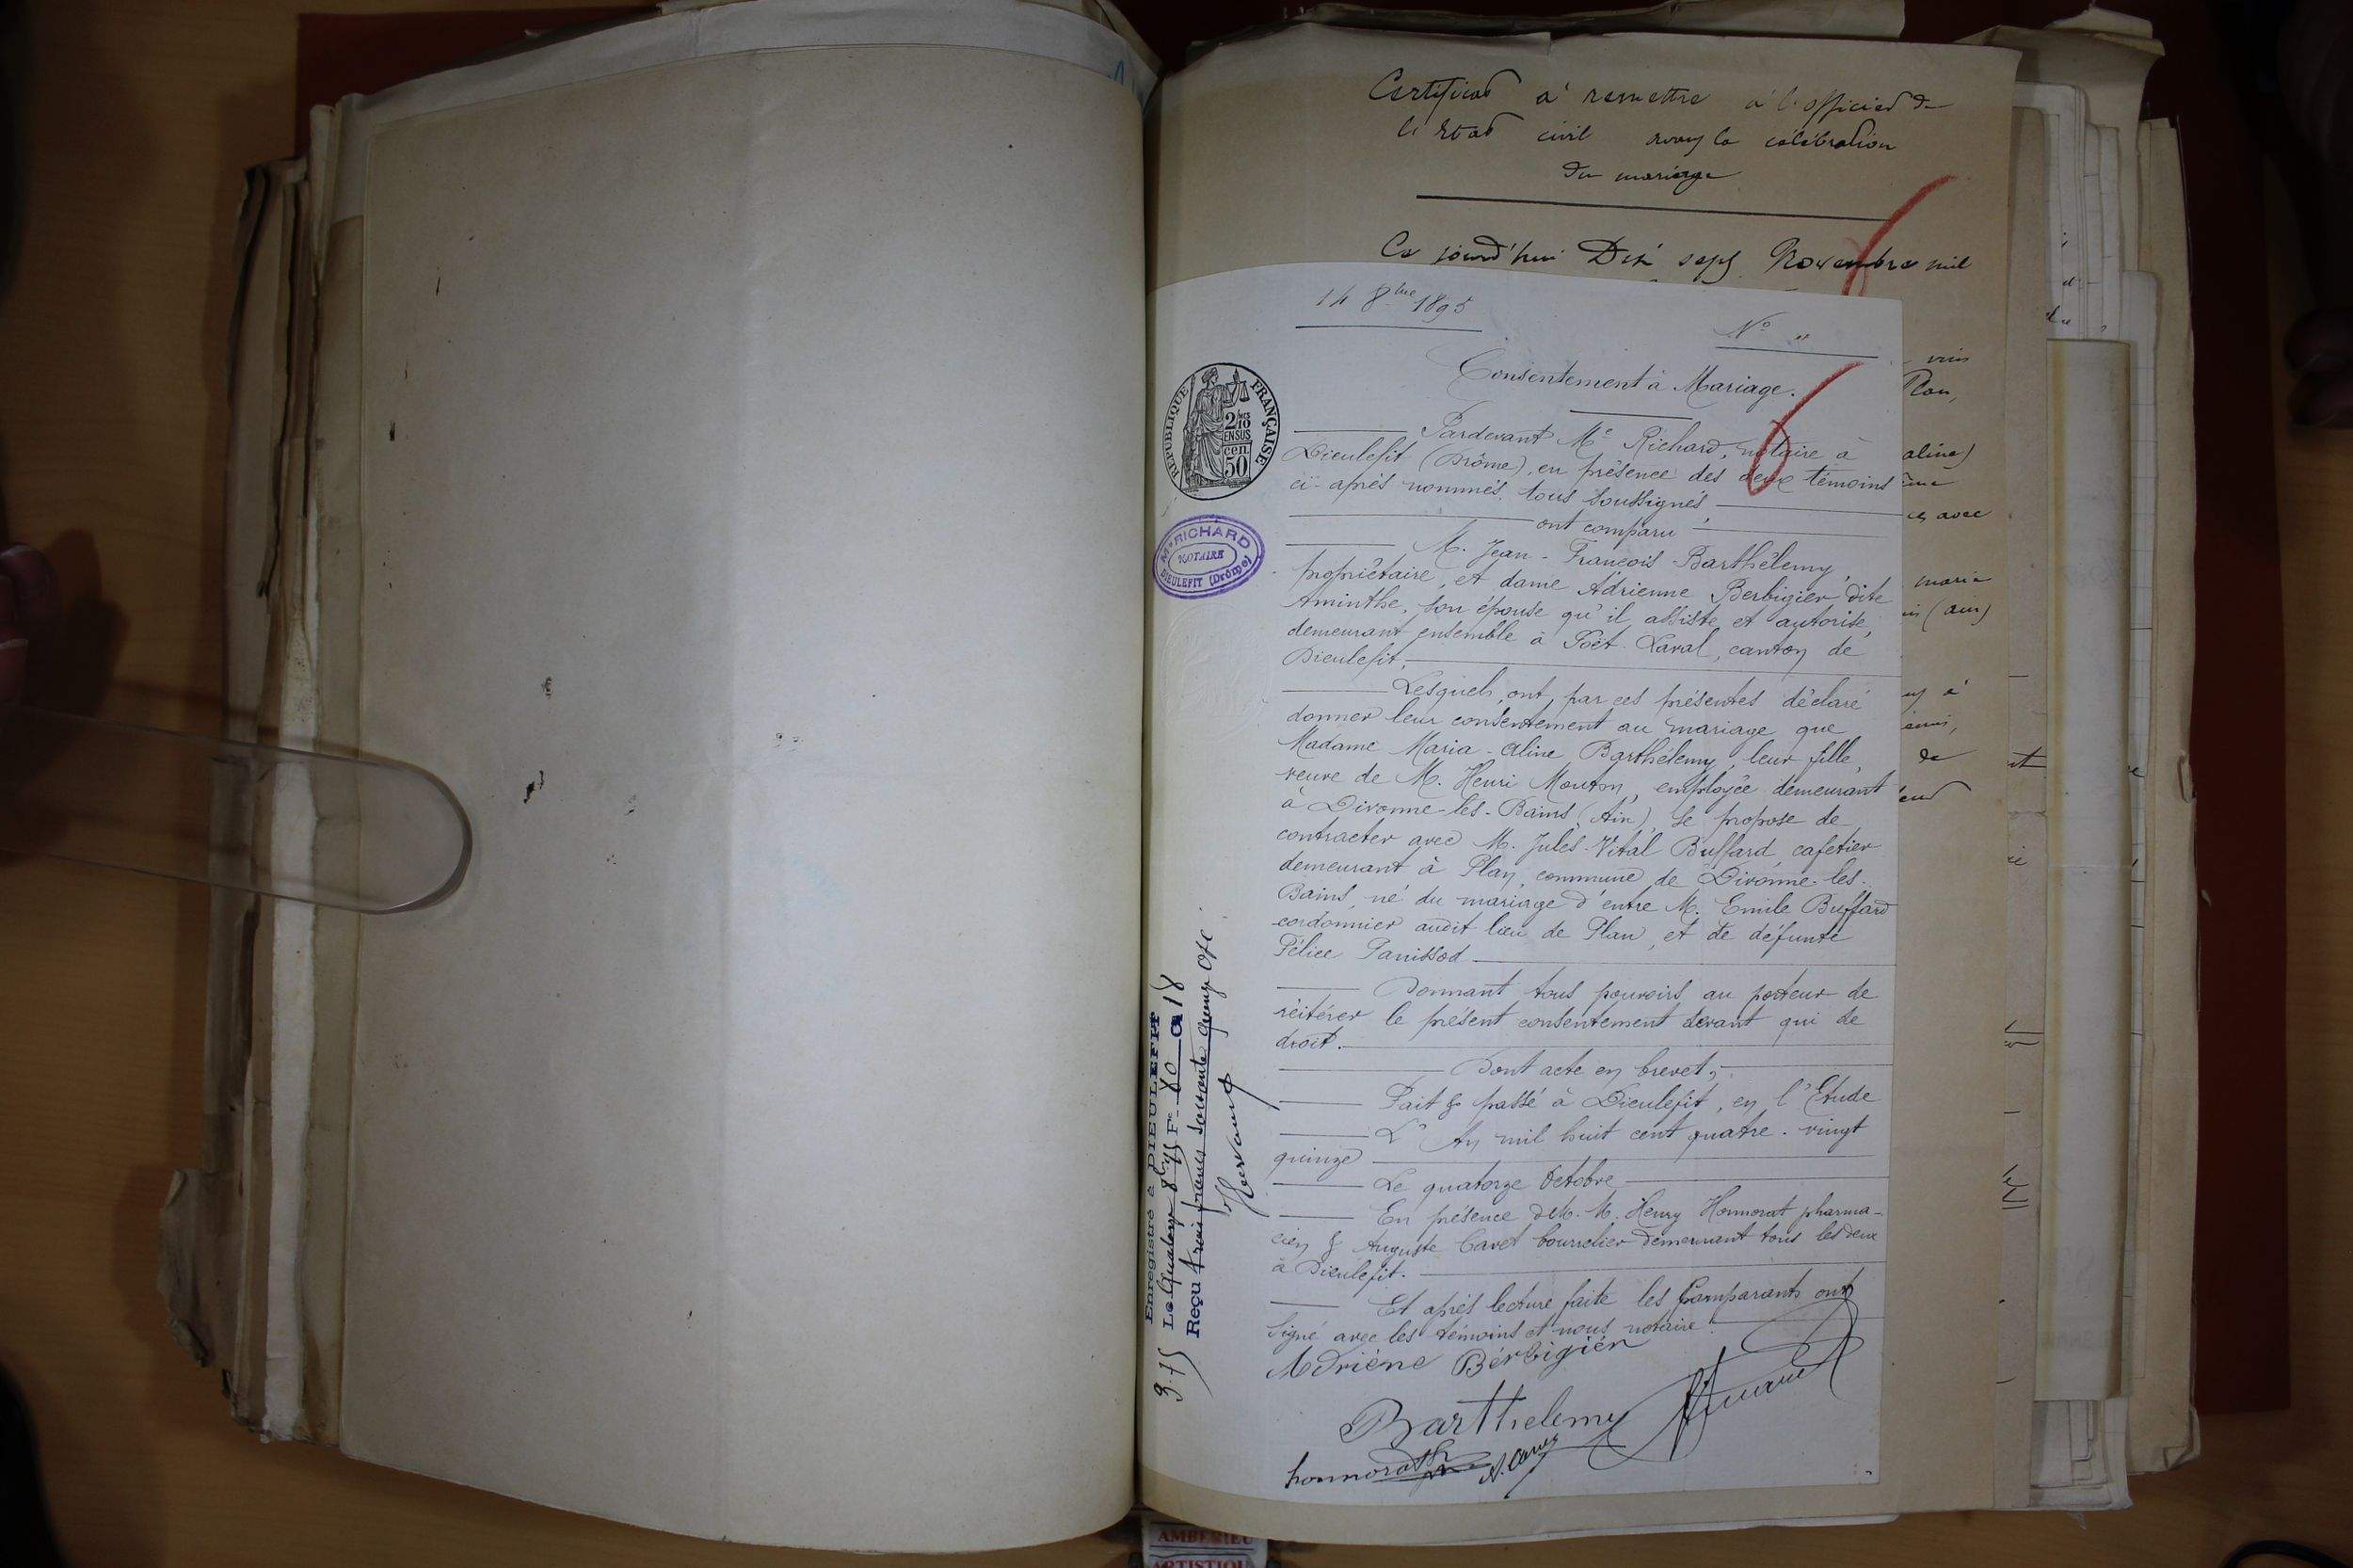 Certificat à remettre à l'officier de
l'état civil avant la célébration
du mariage
Ce jourd'hui Dix sept Novembre mil
14 8bre 1895
N° "
Consentement à Mariage.
RÉPUBLIQUE FRANÇAISE
2/10
EN SUS
cen.
50
Pardevant Me Richard, notaire à
Dieulefit (Drôme), en présence des deux témoins
ci-après nommés, tous soussignés
ont comparu
Me RICHARD
NOTAIRE
DIEULEFIT (Drôme)
M. Jean-François Barthélemy,
propriétaire, et dame Adrienne Berbigier dite
Aminthe, son épouse qu'il assiste et autorise,
demeurant ensemble à Poët-Laval, canton de
Dieulefit,
Lesquels ont, par ces présentes déclaré
donner leur consentement au mariage que
Madame Maria-Aline Barthélemy, leur fille,
veuve de M. Henri Mouton, employée demeurant
à Divonne-les-Bains (Ain), se propose de
contracter avec M. Jules-Vital Buffard, cafetier
demeurant à Plan, commune de Divonne-les-
Bains, né du mariage d'entre M. Emile Buffard
cordonnier audit lieu de Plan, et de défunte
Félice Panissod
Donnant tous pouvoirs au porteur de
réitérer le présent consentement devant qui de
droit.
Dont acte en brevet,
Fait & passé à Dieulefit, en l'Etude
L'An mil huit cent quatre-vingt
quinze
Le quatorze Octobre
En présence de M. M. Henry Honnorat pharma-
cien & Auguste Cavet bourrelier demeurant tous les deux
à Dieulefit.
Et après lecture faite les Comparants ont
signé avec les témoins et nous notaire.
Adriène Bérbigier
Barthelemy
honnorat
A. Cavet
Enregistré à DIEULEFIT
Le Quatorze 8bre 95 F. 60 C. 18
Reçu trois francs soixante quinze
3.75
vins
Plan,
aline)
avec
maria
(ain)
de
AMBERIEU
ARTISTIQU